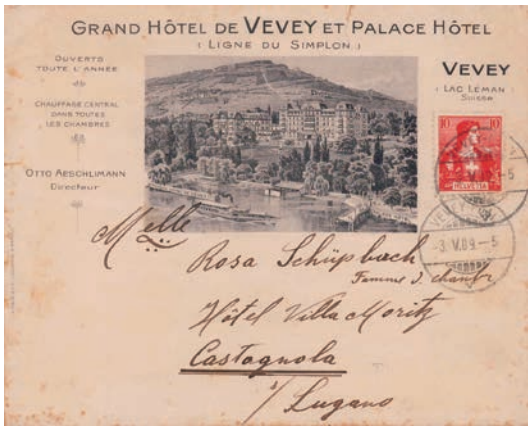 GRAND HÔTEL DE VEVEY ET PALACE HÔTEL
( LIGNE DU SIMPLON )
OUVERTS
TOUTE L'ANNÉE
CHAUFFAGE CENTRAL
DANS TOUTES
LES CHAMBRES
OTTO AESCHLIMANN
Directeur
VEVEY
( LAC LEMAN )
Suisse
10 10
HELVETIA
-3.V.09.-5
Melle
Rosa Schüpbach
Femme d. chambr
Hôtel Villa Moritz
Castagnola
s/ Lugano